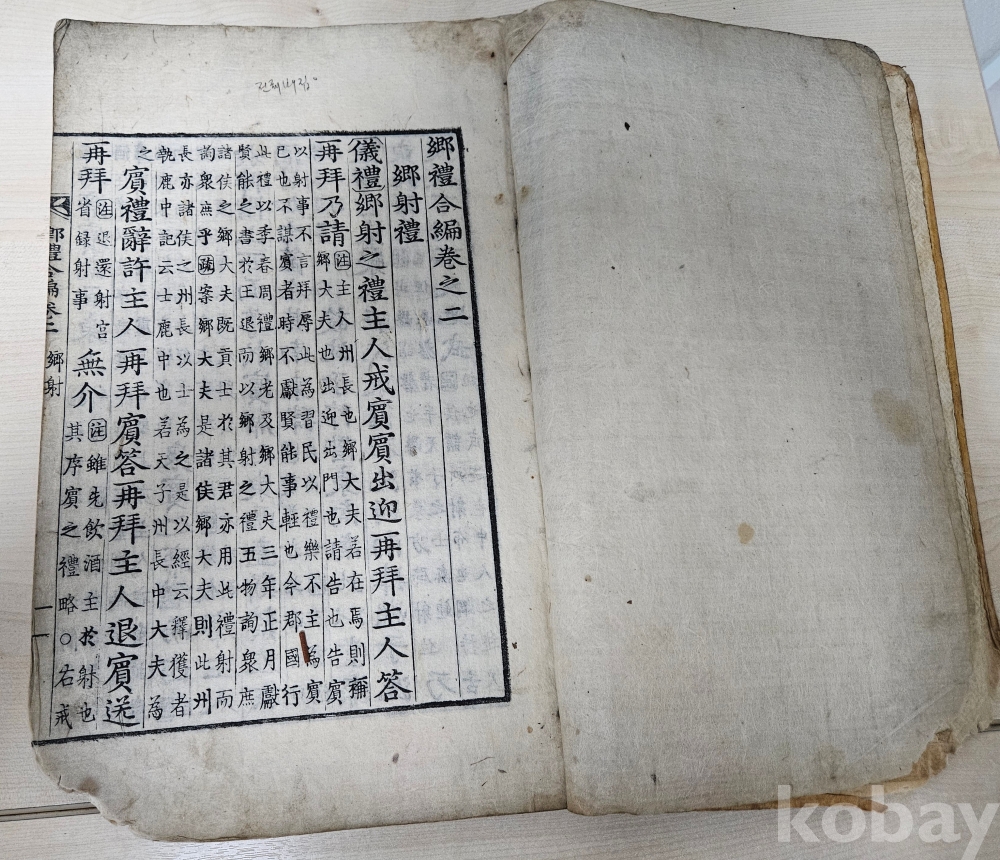 鄉禮合編卷之二
鄉射禮
儀禮鄉射之禮主人戒賓賓出迎再拜主人答
再拜乃請注主人州長也鄉大夫若在焉則稱
鄉大夫也出迎出門也請告也告賓
以射事不言拜辱此為習民以禮樂不主為賓
已也不謀賓者時不獻賢能事輕也今郡國行
此禮以季春周禮鄉老及鄉大夫三年正月獻
賢能之書於王退而以鄉射之禮五物詢衆庶
諸侯之鄉大夫既貢士於其君亦用此禮射而
詢衆庶乎疏案鄉大夫是諸侯鄉大夫則此州
長亦諸侯之州長以士為之是以經云釋獲者
執鹿中記云士鹿中也若天子州長中大夫為
之賓禮辭許主人再拜賓答再拜主人退賓送
再拜注退還射宮省録射事無介注雖先飲酒主於射也
其序賓之禮略○右戒
鄉禮合編卷二 鄉射 一
kobay